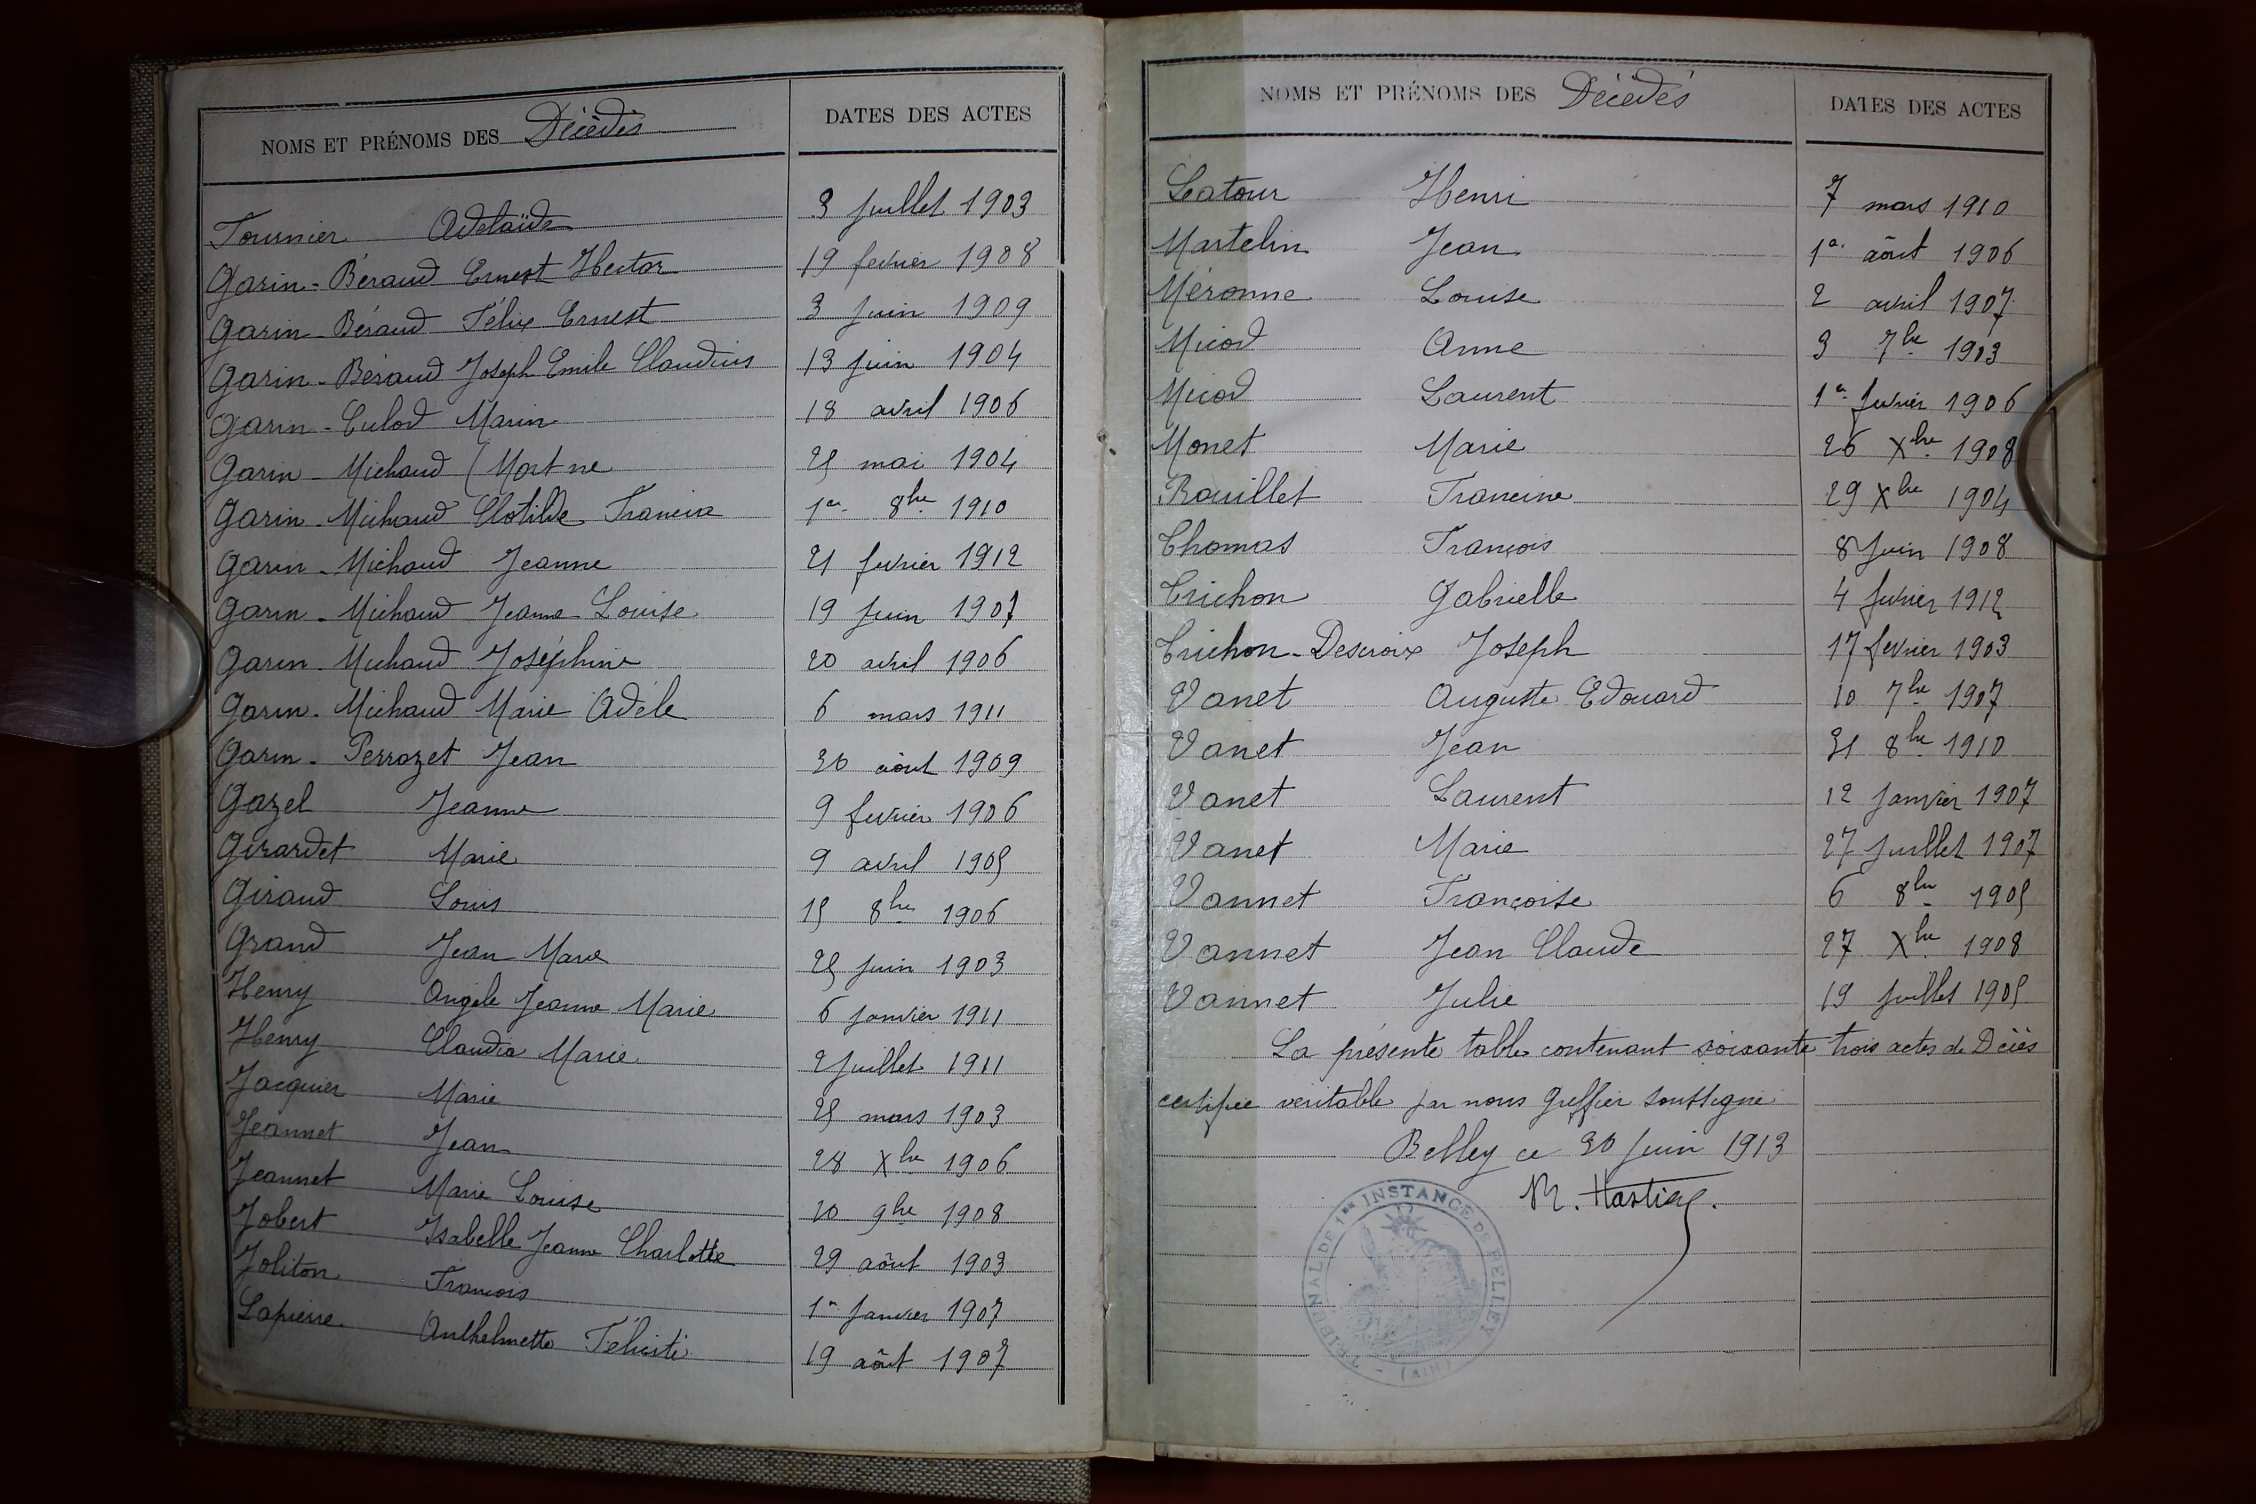 NOMS ET PRÉNOMS DES Décédés DATES DES ACTES
Tournier Adélaïde 3 juillet 1903
Garin-Béraud Ernest Hector 19 fevrier 1908
Garin-Béraud Félix Ernest 3 juin 1909
Garin-Béraud Joseph Emile Claudius 13 juin 1904
Garin-Culod Marin 18 avril 1906
Garin-Michaud (Mort né 25 mai 1904
Garin-Michaud Clotilde Francia 1er 8bre 1910
Garin-Michaud Jeanne 21 fevrier 1912
Garin-Michaud Jeanne Louise 19 juin 1907
Garin-Michaud Joséphine 20 avril 1906
Garin-Michaud Marie Adèle 6 mars 1911
Garin-Perrozet Jean 30 août 1909
Gazel Jeanne 9 fevrier 1906
Girardet Marie 9 avril 1905
Giraud Louis 15 8bre 1906
Grand Jean Marie 25 juin 1903
Henry Angèle Jeanne Marie 6 janvier 1911
Henry Claudia Marie 2 juillet 1911
Jacquier Marie 25 mars 1903
Jeannet Jean 28 Xbre 1906
Jeannet Marie Louise 20 9bre 1908
Jobert Isabelle Jeanne Charlotte 29 août 1903
Joliton François 1er janvier 1907
Lapierre Anthelmette Félicité 19 août 1907
NOMS ET PRÉNOMS DES Décédés DATES DES ACTES
Latour Henri 7 mars 1910
Martelin Jean 1er août 1906
Méronne Louise 2 avril 1907
Micod Anne 3 7bre 1903
Micod Laurent 1er fevrier 1906
Monet Marie 26 Xbre 1908
Rouillet Francine 29 Xbre 1904
Thomas François 8 juin 1908
Trichon Gabrielle 4 fevrier 1912
Trichon-Descroix Joseph 17 fevrier 1903
Vanet Auguste Edouard 10 7bre 1907
Vanet Jean 31 8bre 1910
Vanet Laurent 12 janvier 1907
Vanet Marie 27 juillet 1907
Vannet Françoise 6 8bre 1905
Vannet Jean Claude 27 Xbre 1908
Vannet Julie 19 juillet 1905
La présente table contenant soixante trois actes de Décès
certifiée veritable par nous Greffier soussigné
Belley ce 30 juin 1913
TRIBUNAL DE 1re INSTANCE DE BELLEY
(AIN)